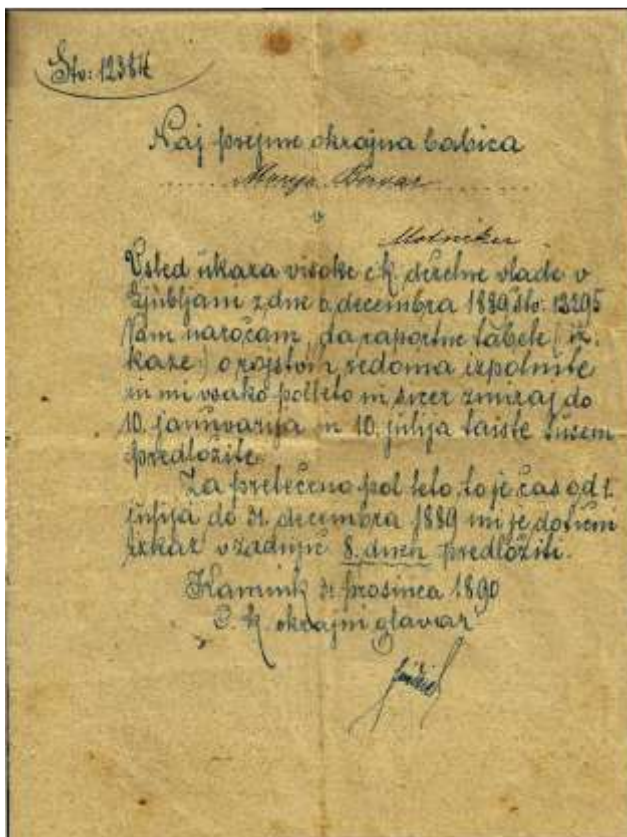 Štv: 12384
Naj prejme okrajna babica
Marija Bervar
v
Motniku
Vsled ukaza visoke c k deželne vlade v
Ljubljani z dne 6 decembra 1889 štv: 13295
Vam naročam, da raportne tabele (iz-
kaze) o rojstvih redoma izpolnite
in mi vsako pol leto in sicer zmiraj do
10. januvarija in 10. julija taiste tusem
predložite.
Za pretečeno pol leto, to je čas od 1.
julija do 31. decembra 1889 mi je dotični
izkaz v zadnjič 8. dneh predložiti.
Kamnik 31 prosinca 1890
C. k. okrajni glavar